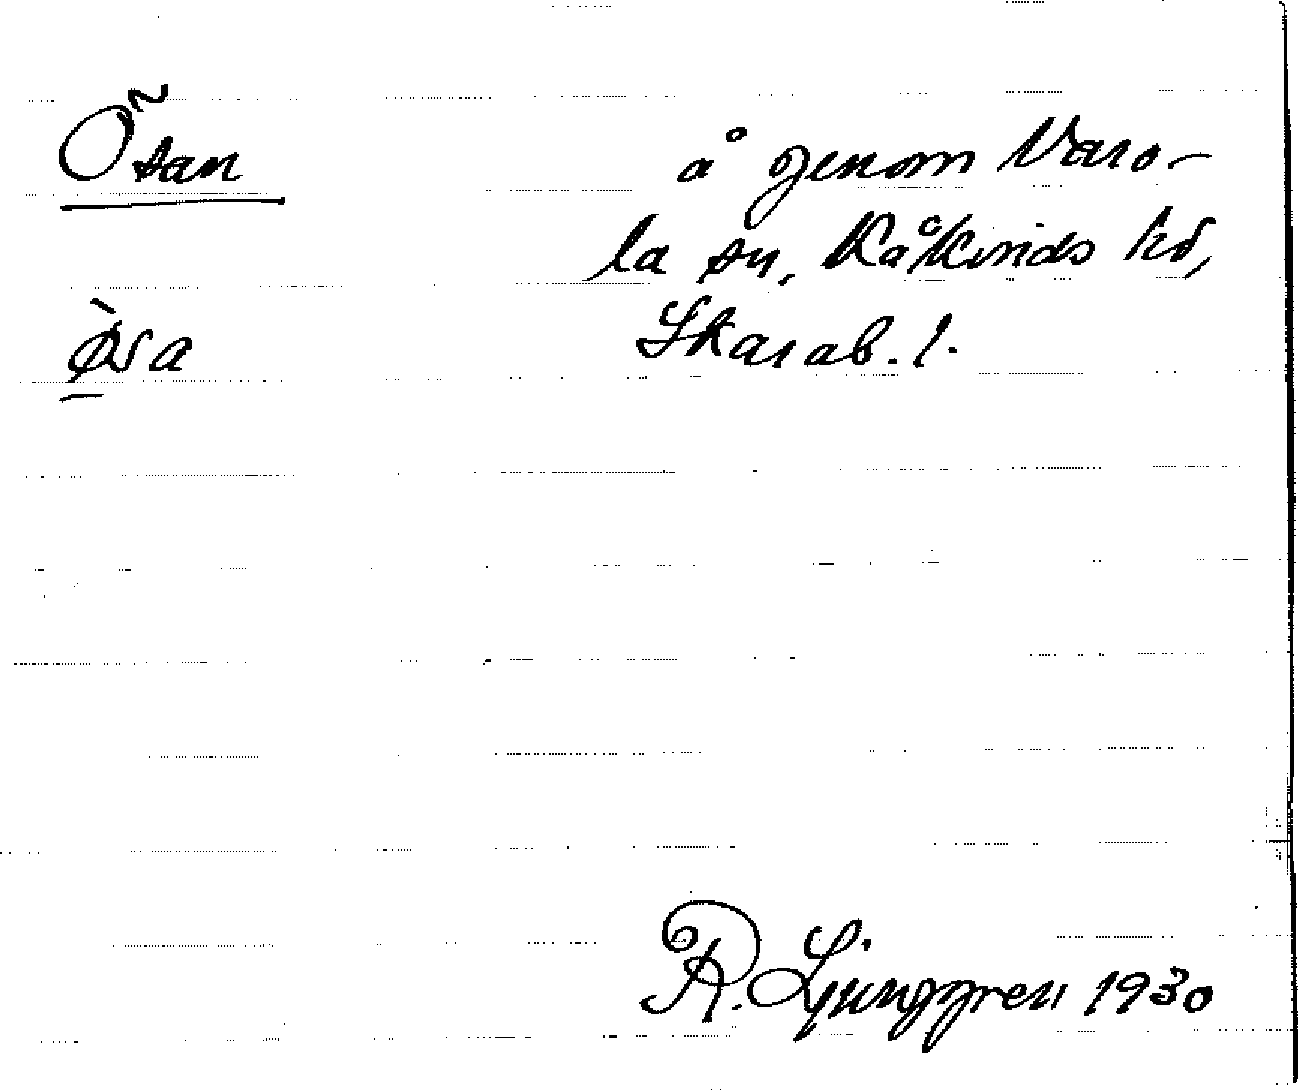 Ösan å genom Varo-
la sn, Kåkinds hd,
Òsa Skarab. l.
R. Ljunggren 1930